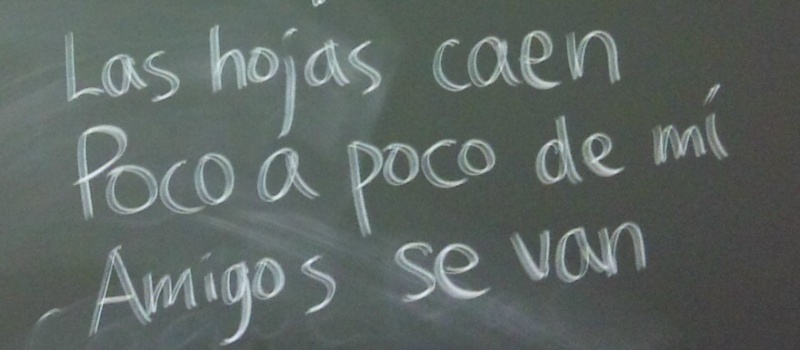 Las hojas caen
Poco a poco de mí
Amigos se van